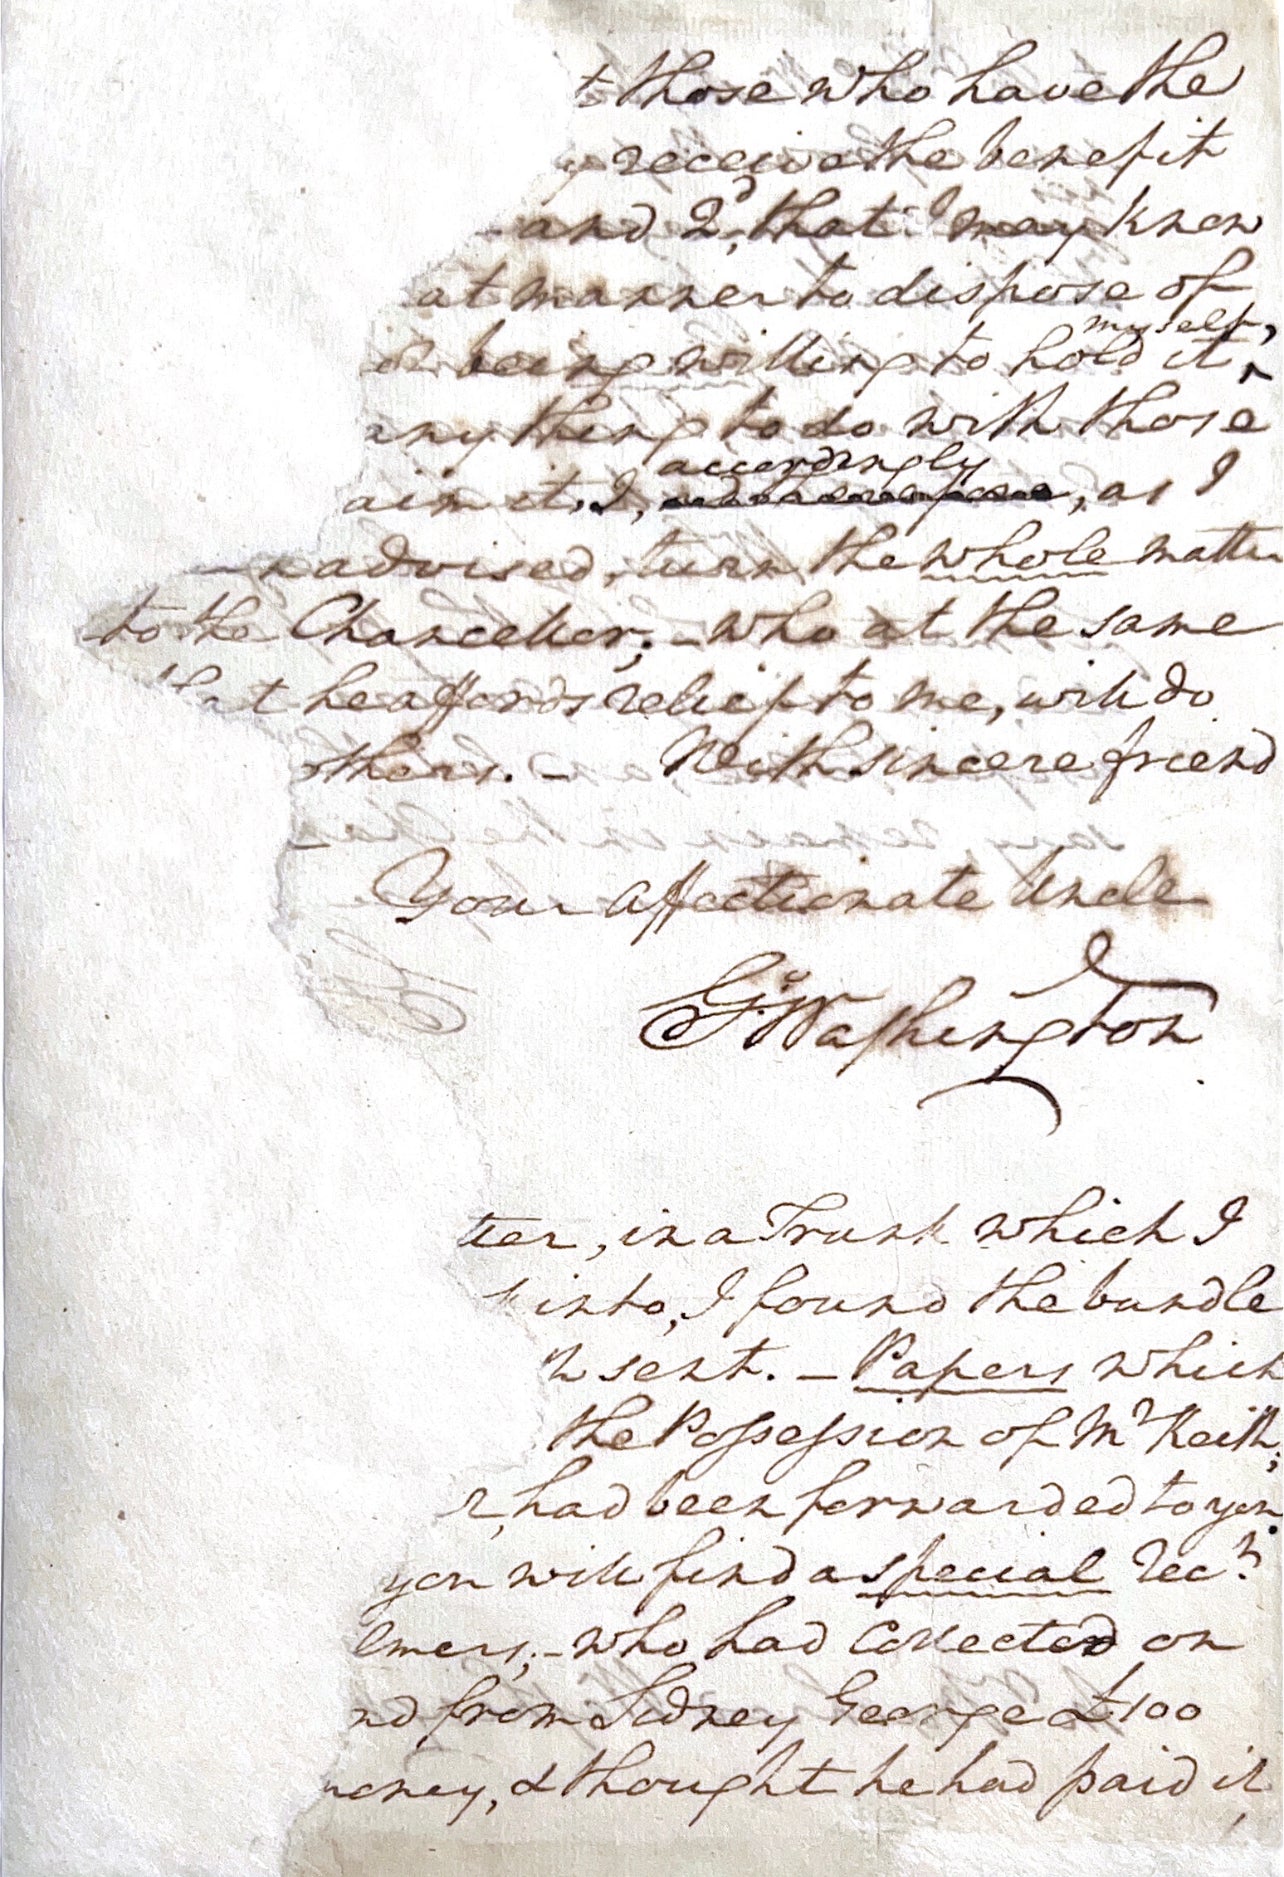 t those who have the
receive the benefit
and 2d, that I may know
at manner to dispose of
being willing to hold it myself,
any thing to do with those
aim it. I, accordingly, as I
advised, turn the whole matter
to the Chancellor; – who at the same
that he affords relief to me, will do
others. – With sincere friend
Your Affectionate Uncle
Go: Washington
tter, in a Trunk which I
into, I found the bundle
sent. – Papers which
the Possession of Mr Keith;
r, had been forwarded to you.
you will find a special Rect
lmers; – who had Collected on
nd from Sidney George £100
money, & thought he had paid it,